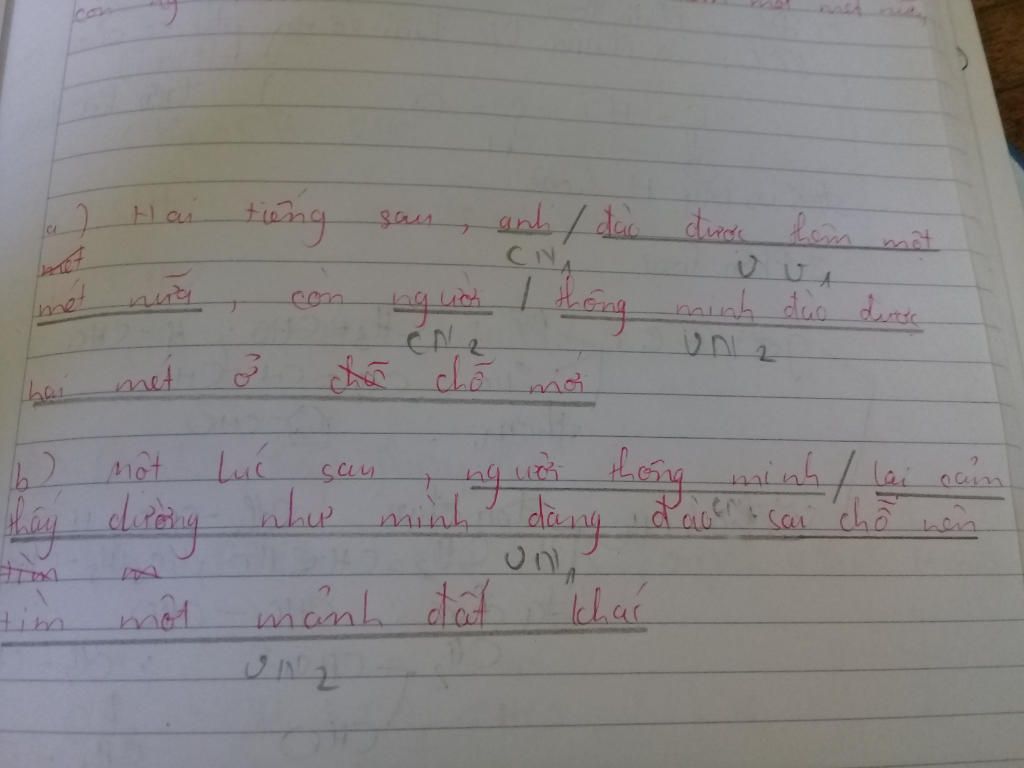 con ng
a) Hai tiếng sau, anh / đào được thêm một
CN1 VV1
mét
mét nữa, còn người / thông minh đào được
CN2 VN2
hai mét ở chỗ chỗ mới
b) một lúc sau, người thông minh / lại cảm
thấy dường như mình đang đào sai chỗ nên
CN1 VN1
tìm m
tìm một mảnh đất khác
VN2